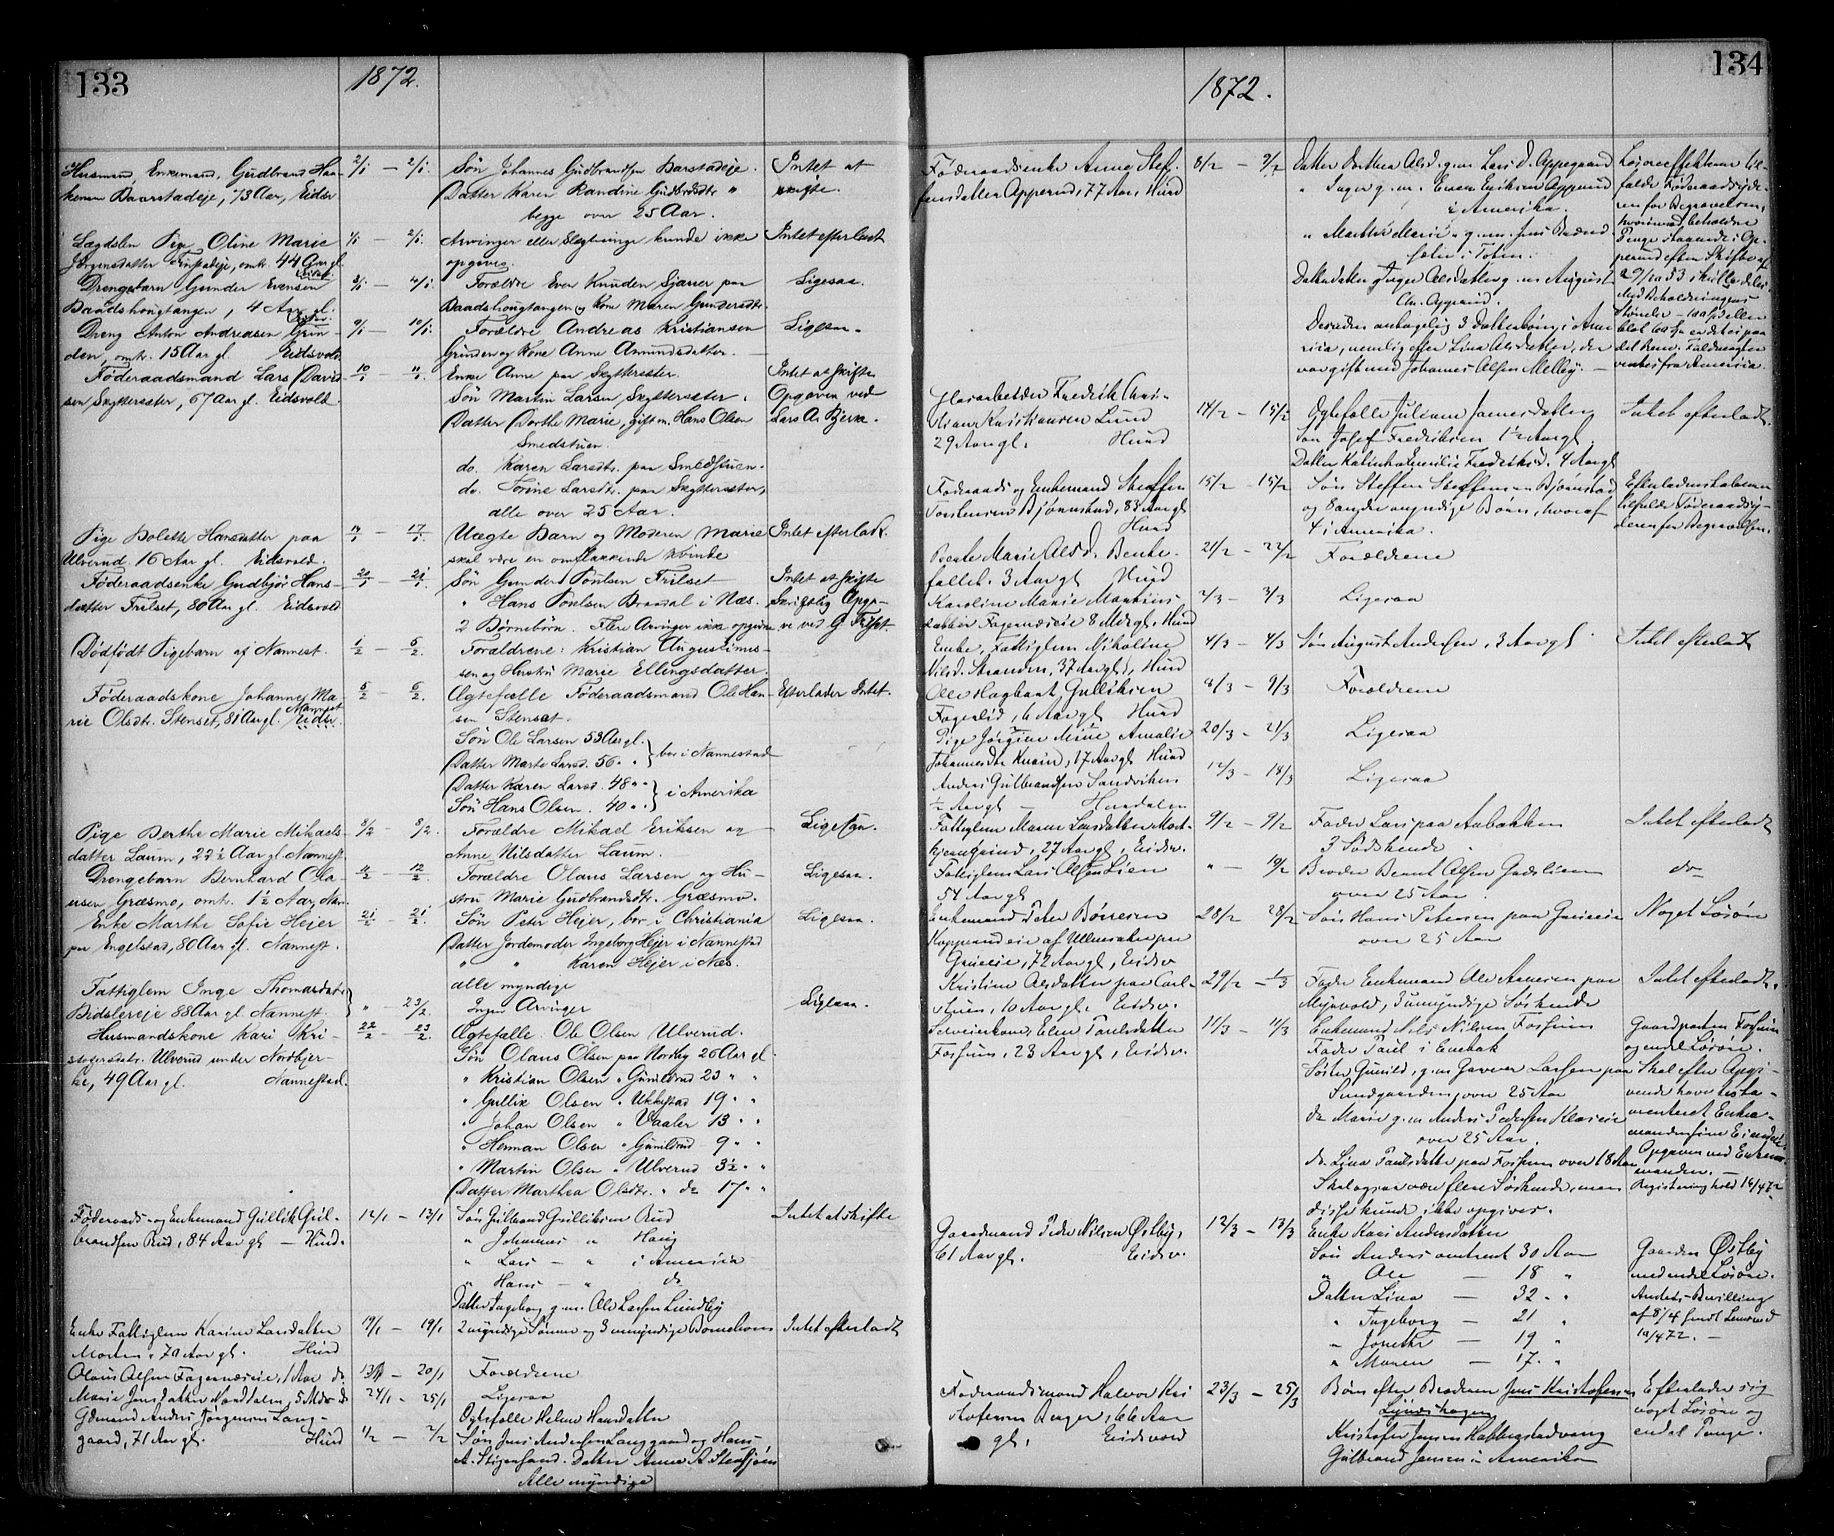 133
1872.
Husmand, Enkemand, Gudbrand Haa-
kensen Baarstadeje, 73 Aar, Eidsv
2/1 — 2/1.
Søn Johannes Gudbrandsen Baarstadeje.
Datter Karen Randine Gudbrdsdtr "
begge over 25 Aar.
Intet at
skifte.
Lægdslem Pige Oline Marie
Jørgensdatter Finstadeje, omtr. 44 Aar gl.
1/1 — 2/1.
Arvinger eller Slægtninge kunde ikke
opgives.
Intet efterladt
Drengebarn Gunder Evensen
Baadshougtangen, 4 Aar gl.
3/1 — 4/1.
Forældre Even Knudsen Sjaner paa
Baadshougtangen og Kone Maren Gundersdtr.
Ligesaa.
Dreng Anton Andreasen Grün-
den, omtr. 15 Aar gl. Eidsvold
9/1 — 10/1.
Forældre Andreas Kristiansen
Grunden og Kone Anne Amundsdatter.
Ligesaa.
Føderaadsmand Lars David-
sen Skyttersæter, 67 Aar gl. Eidsvold.
10/1 — 11/1.
Enke Anne paa Skyttersæter.
Søn Martin Larsen Skyttersæter.
Datter Dorthe Marie, gift m. Hans Olsen
Smedstuen.
do. Karen Larsdtr. paa Smedstuen.
do. Sorine Larsdtr. paa Skyttersæter,
alle over 25 Aar.
Intet at skifte
Opgaven ved
Lars A. Bjerke.
Pige Bolette Hansdatter paa
Ulverud 16 Aar gl. Eidsvold.
— 17/1.
Uægte Barn og Moderen Marie
skal være en omflakkende Kvinde
Intet efterladt.
Føderaadsenke Gudbjør Hans-
datter Trilset, 80 Aar gl. Eidsvold
20/1 — 21/1.
Søn Gunder Poulsen Trilset
" Hans Poulsen Braadal i Næs.
2 Børnebørn. Flere Arvinger ikke opgivne
Intet at skifte
Skriftlig Opga-
ve ved G. Trilset.
Dødfødt Pigebarn af Nannest.
1/2 — 5/2.
Forældrene: Kristian Augustinus-
sen og Hustru Marie Ellingsdatter.
Føderaadskone Johanne Ma-
rie Olsdtr. Stenset, 81 Aar gl. Nannest
5/2 — 6/2.
Ægtefælle Føderaadsmand Ole Han-
sen Stenset.
Søn Ole Larsen 53 Aar gl.
Datter Marte Larsd. 56 " " bor i Nannestad
Datter Karen Larsd. 48 " "
Søn Hans Olsen. 40 " " i Amerika
Efterlader Intet.
Pige Berthe Marie Mikaels-
datter Laum, 22½ Aar gl. Nannest.
8/2 — 8/2.
Forældre Mikael Eriksen og
Anne Nilsdatter Laum.
Ligesaa.
Drengebarn Bernhard Ola-
usen Græsmo, omtr. 1½ Aar, Nan.
11/2 — 12/2.
Forældre Olaus Larsen og Hu-
stru Marie Gudbrandsdtr. Græsmo.
Ligesaa.
Enke Marthe Sofie Hejer
paa Engelstad, 80 Aar gl. Nannest.
21/2 — 21/2.
Søn Peter Hejer, bor i Christiania
Datter Jordemoder Ingeborg Hejer i Nannestad
" " Karen Hejer i Næs.
alle myndige
Ligesaa.
Fattiglem Inge Thomasdatr.
Bidslereje 88 Aar gl. Nannest.
" — 23/2.
Ingen Arvinger
Ligesaa.
Husmandskone Kari Kri-
stofersdatr. Ulverud under Nordbjer-
ke, 49 Aar gl. Nannestad.
22/2 — 23/2.
Ægtefælle Ole Olsen Ulverud.
Søn Olaus Olsen paa Nordby 26 Aar gl.
" Kristian Olsen " Gunildrud 23 " "
" Gullik Olsen " Ukkestad 19 " "
" Johan Olsen " Vaaler 13 " "
" Herman Olsen " Gunildrud 9 " "
" Martin Olsen " Ulverud 3½ " "
Datter Marthea Olsdtr. " do 17 " "
Føderaads- og Enkemand Gullik Gul-
brandsen Rud, 84 Aar gl — Hurd.
12/1 — 13/1
Søn Gulbrand Gulliksen Rud
" Johannes " Haug
" Lars — " i Amerika
" Hans — " do
Datter Ingeborg g.m. Ole Larsen Lundby
Intet at skifte
Enke Fattiglem Karine Larsdatter
Morten, 70 Aar gl. Hurd
19/1 — 19/1
2 myndige Sønner og 3 umyndige Børnebørn
Intet efterladt
Olaus Olsen Fagernæseie, 1 Aar do
— 20/1
Forældrene
Marie Jensdatter Norddalen, 5 Mdr. do
24/1 — 25/1
Ligesaa
Gdmand Anders Jørgensen Lang-
gaard, 71 Aar gl. Hurd
1/2 — 2/2
Ægtefælle Helene Hansdatter
Søn Jens Andersen Langgaard og Hans
A. Stigersand. Datter Anne A. Stensjøen
Alle myndige
134
1872.
Føderaadsenke Anne Stef-
fensdatter Apperud, 77 Aar, Hurd
8/2 — 9/2
Datter Berthea Olsd. g.m. Lars D. Appegaard
" Inger g.m. Even Eriksen Apperud
i Amerika.
" Marthe Marie g.m. Jens Brænd-
sæter i Toten.
Datterdatter Inger Olsdatter g.m. August
Chr. Apperud.
Desuden antagelig 3 Datterbørn i Ame-
rika, nemlig efter Lina Olsdatter, der
var gift med Johannes Olsen Melby.
Løsøreeffekterne til-
falde Føderaadsyde-
ren for Begravelsen,
hvorimod beholdne
Penge istaaende i Ap-
perud efter Skifte af
29/10 53 skille deles
Fuldmagter
ventes fra Amerika.
Havarbeider Fredrik Chri-
stian Kristiansen Lund
29 Aar gl. Hurd
14/2 — 15/2
Ægtefælle Juliane Jonesdatter
Søn Josef Fredriksen 1½ Aar gl.
Datter Katinka Emilie Fredriksd. 4 Aar gl
Intet efterladt.
Føderaads og Enkemand Steffen
Torstensen Bjørnstad, 83 Aar gl
Hurd
15/2 — 15/2
Søn Steffen Steffensen Bjørnstad
og 8 andre myndige Børn, hvoraf
4 i Amerika.
Efterladenskaberne
tilfalde Føderaadsy-
deren for Begravelsen.
Beate Marie Olsd. Benke-
fallet. 3 Aar gl Hurd
21/2 — 22/2
Forældrene
Karoline Marie Martinus-
datter Fagernæseie 8 Mdr gl, Hurd
2/3 — 3/3
Ligesaa
Enke, Fattiglem Nikoline
Nilsd. Stranden, 37 Aar gl, Hurd
4/3 — 4/3
Søn August Andersen, 3 Aar gl
Intet efterladt
Ole Hagbart Gulliksen
Fagerlid, 6 Aar gl Hurd
8/3 — 9/3
Forældrene
Pige Jørgine Mine Amalie
Johannesdtr Knain, 17 Aar gl. Hurd
20/3 — 21/3
Ligesaa
Anders Gulbrandsen Sandviken
½ Aar gl — Hurdalen
12/3 — 18/3
Ligesaa
Fattiglem Maren Larsdatter
27 Aar gl, Eidsv.
9/2 — 9/2
Fader Lars paa Aabakken
3 Sødskende
Intet efterladt
Fattiglem Lars Olsen Lien
54 Aar gl
" — 19/2
Broder Bernt Olsen Gudslien
over 25 Aar.
do
Enkemand Peter Børresen
72 Aar gl, Eidsv
28/2 — 28/2
Søn Hans Petersen paa
over 25 Aar
Noget Løsøre
Kristine Olsdatter paa Carl-
stuen, 10 Aar gl. Eidsv.
29/2 — 1/3
Fader Enkemand Ole Arnesen paa
Myrvold, 3 umyndige Søskende
Intet efterladt.
Elen Paulsdatter
Fossum, 23 Aar gl, Eidsv.
11/3 — 11/3
Enkemand Nils Nilsen Fossum
Fader Paul i Enebak
Søster Gunild, g.m. Gunner Larsen paa
Sundgaarden, over 25 Aar
do Marie g.m. Anders Pedersen Klaseie
over 25 Aar.
do Lina Paulsdatter paa Fossum over 18 Aar
Skal ogsaa være flere Søskende, men
disse kunde ikke opgives.
Gaardparten Fossum
og endel Løsøre.
Skal efter Opgi-
vende have testa-
menteret Enke-
manden sine Eiendele
Opgaven ved Enke-
manden. —
Registering hold 14/4 72
Gaardmand Peder Nilsen Østby,
61 Aar gl. Eidsv.
12/3 — 13/3
Enke Kari Andersdatter
Søn Anders omtrent 30 Aar
" Ole — 18 "
Datter Lina — 32 " "
" Ingeborg — 21 "
" Jonette — 19 "
" Maren — 17 "
Gaarden Østby
med endel Løsøre.
Anders Bevilling
af 8/4 sendt Lensmd
10/4 72. —
Føderaadsmand Halvor Kri-
stofersen Berger, 66 Aar
gl. Eidsvold
23/3 — 25/3
Børn efter Broderen Jens Kristofersen
Lyneshagen
Kristofer Jensen Habberstadvang
Gulbrand Jensen i Amerika
Efterlader sig
noget Løsøre og
endel Penge.